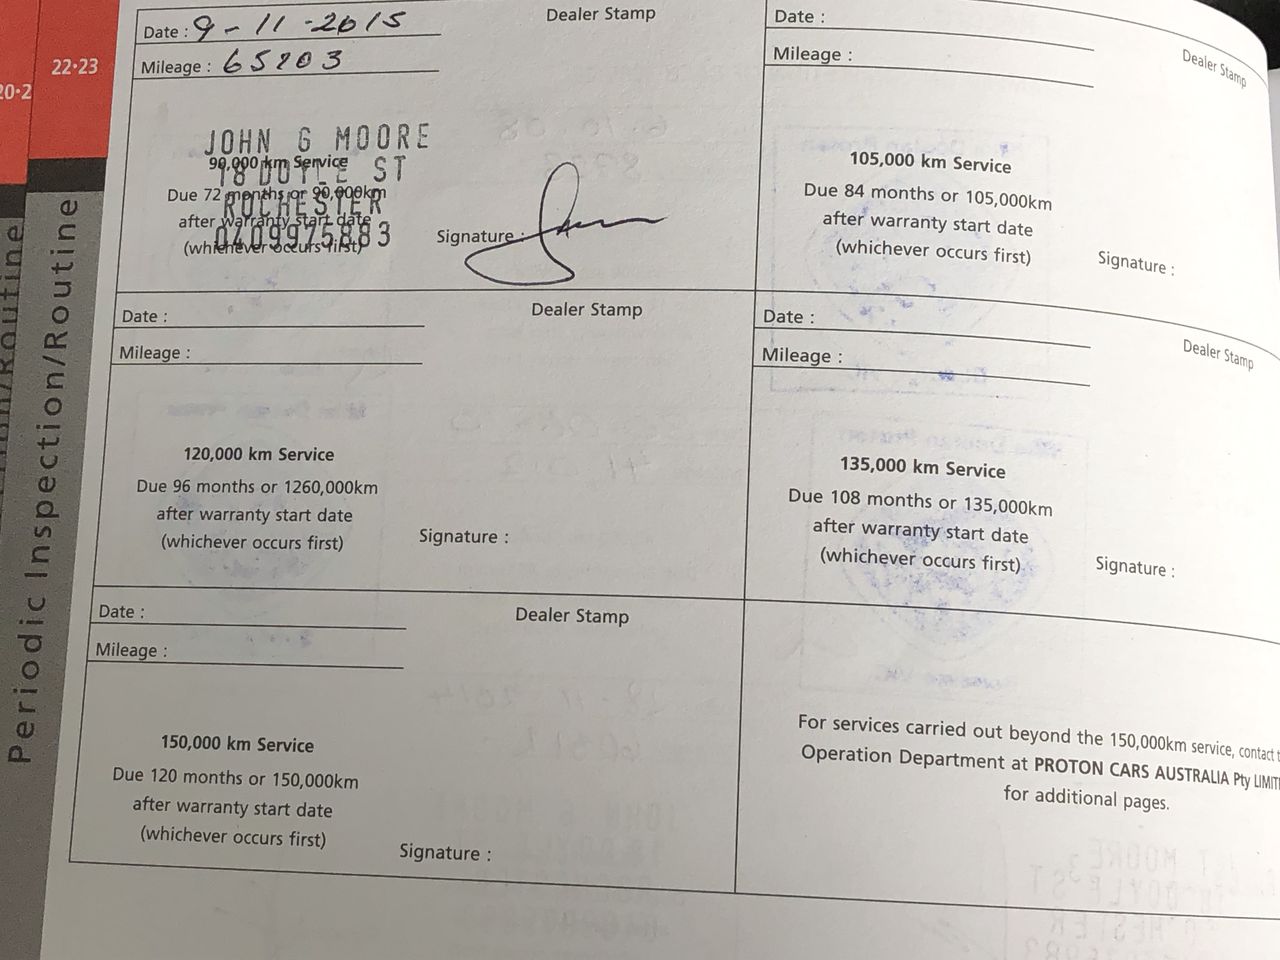 20·2
22·23
Periodic Inspection/Routine
Date : 9-11-2015
Mileage : 65203
Dealer Stamp
JOHN G MOORE
18 DOYLE ST
ROCHESTER
0409975883
90,000 km Service
Due 72 months or 90,000km
after warranty start date
(whichever occurs first)
Signature :
Date :
Mileage :
Dealer Stamp
105,000 km Service
Due 84 months or 105,000km
after warranty start date
(whichever occurs first)
Signature :
Date :
Mileage :
Dealer Stamp
120,000 km Service
Due 96 months or 1260,000km
after warranty start date
(whichever occurs first)
Signature :
Date :
Mileage :
Dealer Stamp
135,000 km Service
Due 108 months or 135,000km
after warranty start date
(whichever occurs first)
Signature :
Date :
Mileage :
Dealer Stamp
150,000 km Service
Due 120 months or 150,000km
after warranty start date
(whichever occurs first)
Signature :
For services carried out beyond the 150,000km service, contact
Operation Department at PROTON CARS AUSTRALIA Pty LIMIT
for additional pages.